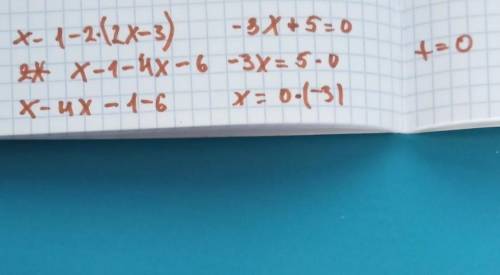 x - 1 - 2·(2x - 3)
x - 1 - 4x - 6
x - 4x - 1 - 6
-3x + 5 = 0
-3x = 5·0
x = 0·(-3)
x = 0